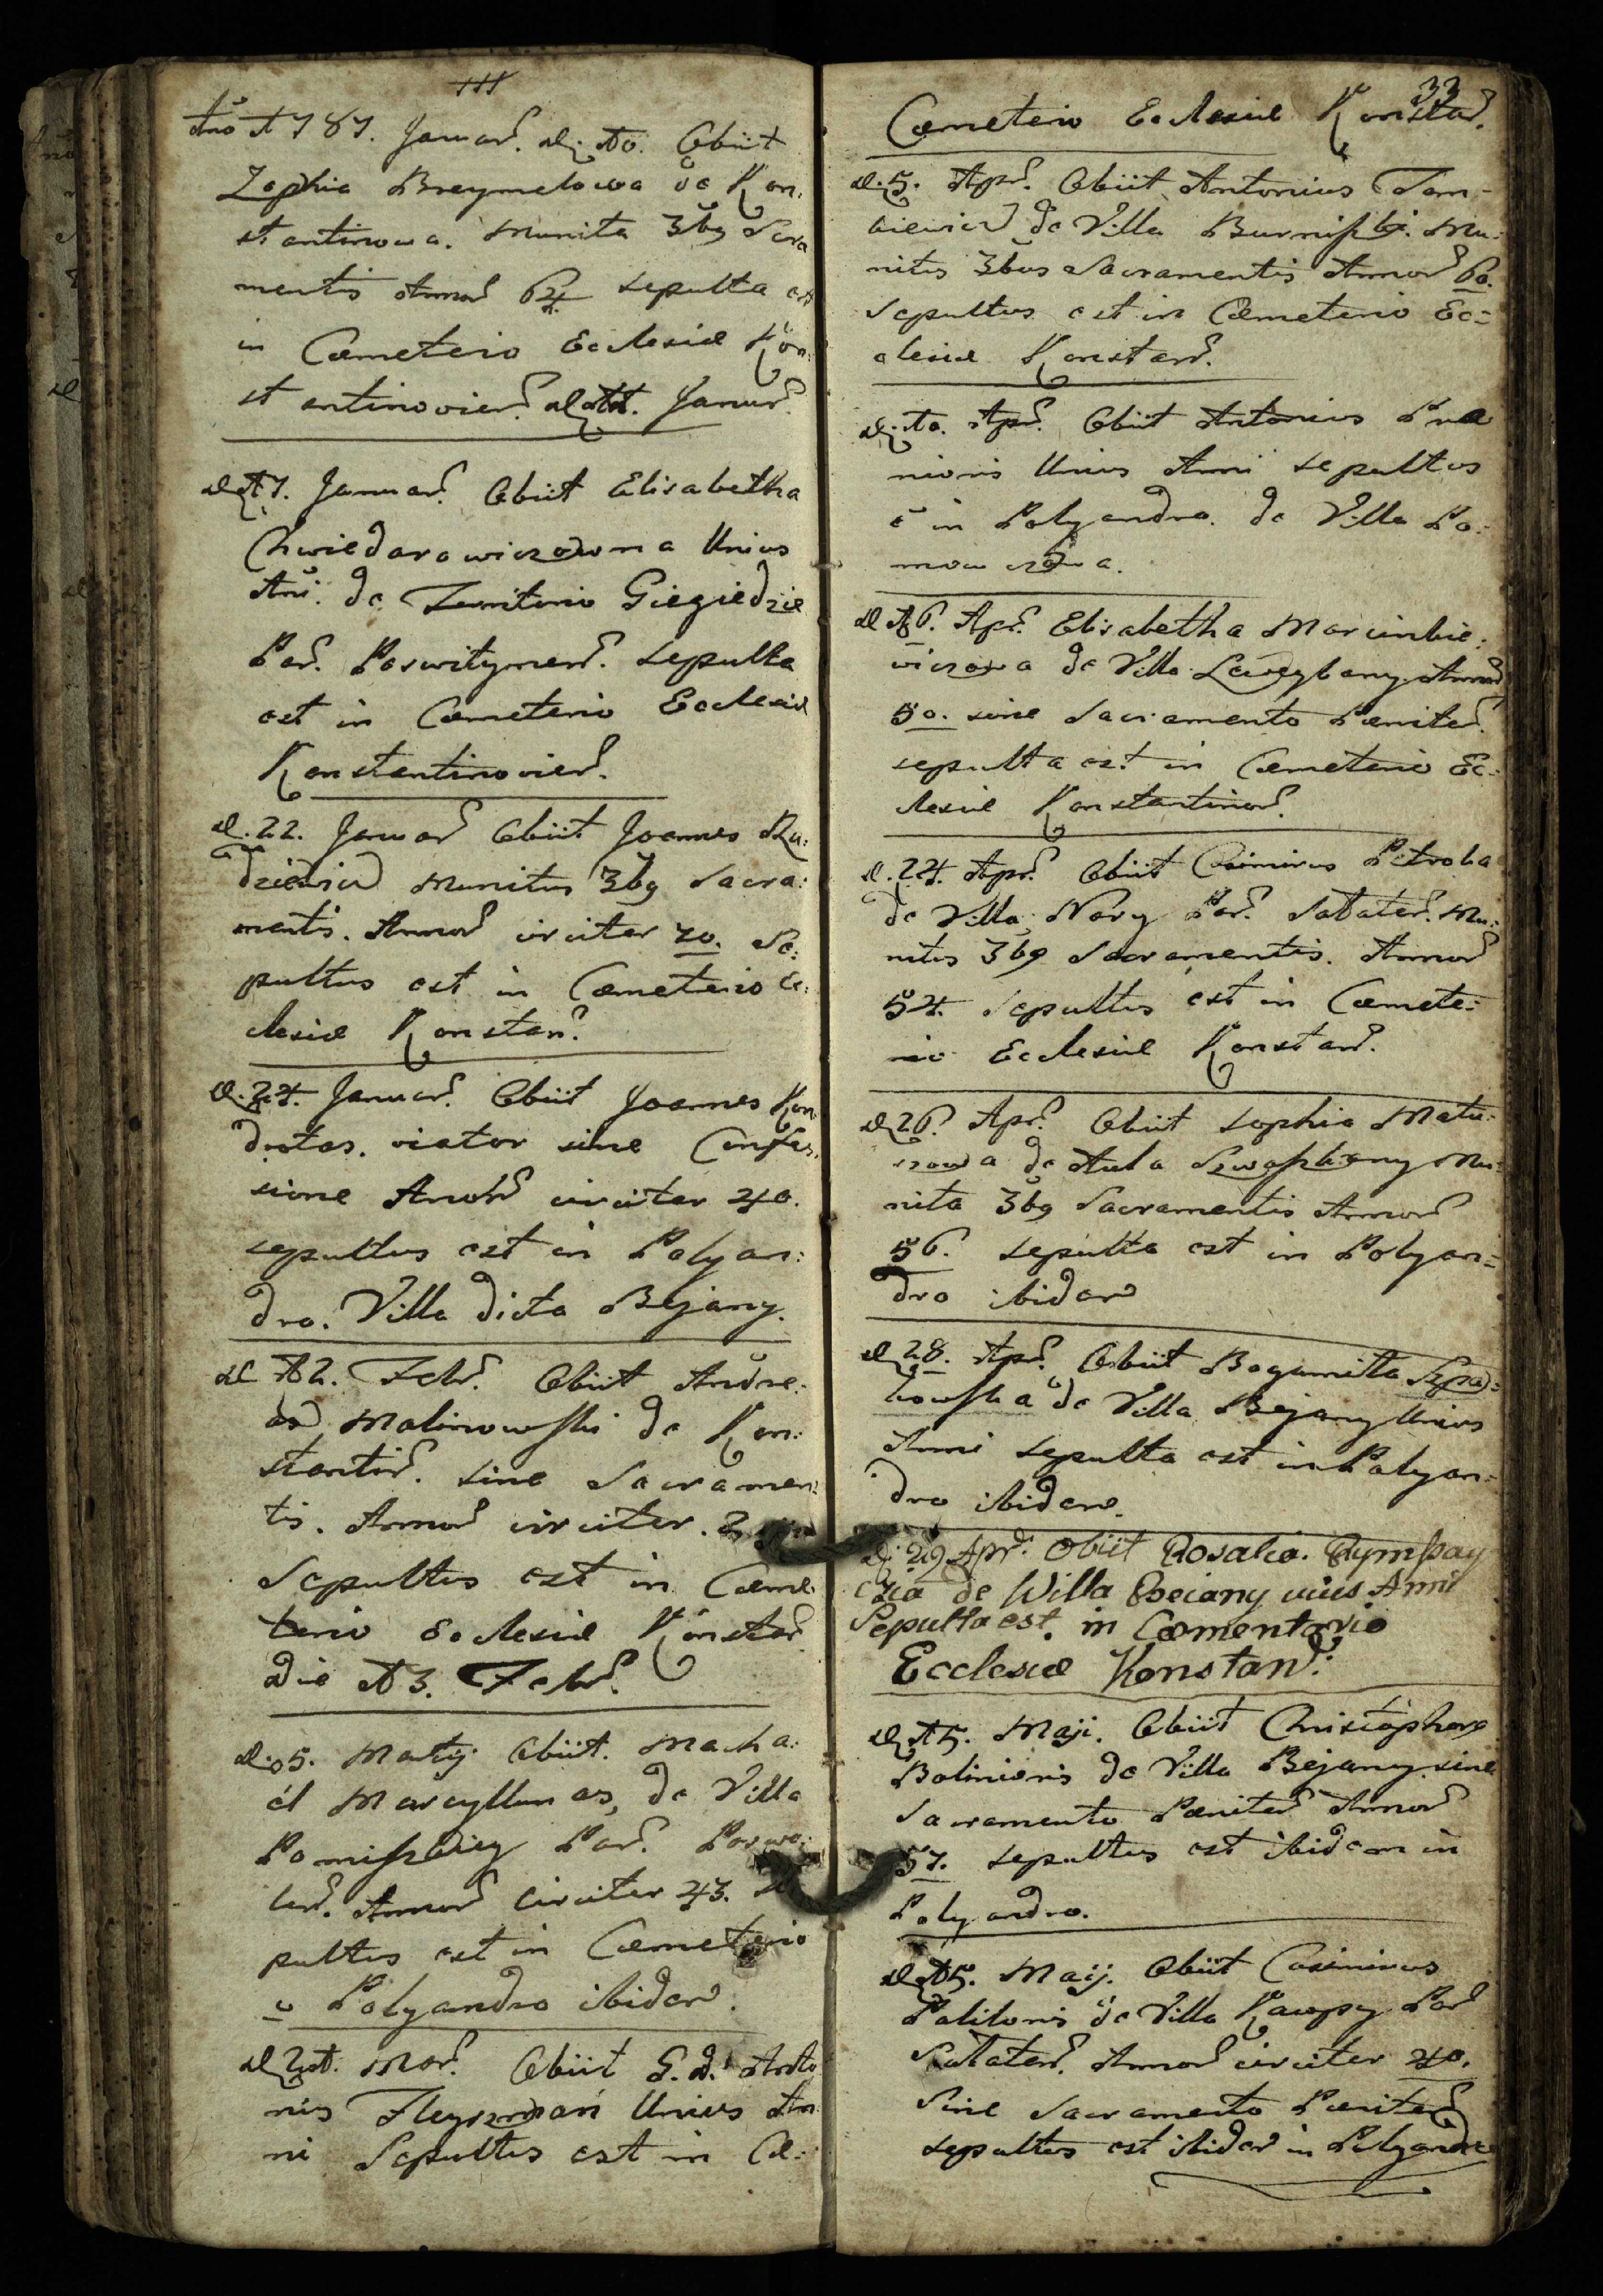 Año 1787. Januar. d. 10. Obiit
Zophia Breymelowa de Kon:
stantinowa. Munita 3bg Sacra
mentis Annor 64 sepulta est
in Cœmeterio Ecclesiæ Kon:
stantinovien. d. 11. Januar.
d. 17. Januar. Obiit Elisabetha
Chwiedarowiczowna Unius
Ani. de Territorio Giegiedzie
Par. Poswitymen. sepulta
est in Cœmeterio Ecclesiæ
Konstantinovien.
d. 22. Januar Obiit Joannes Ru:
dziewicz Munitus 3bg Sacra:
mentis. Annor circiter 70. Se:
pultus est in Cœmeterio Ec:
clesiæ Konstan.
d. 24. Januar. Obiit Joannes Kon:
drotas. viator sine Confes:
sione Annor circiter 40.
sepultus est in Polyan:
dro. Villa dicta Bejany.
d. 12. Febr. Obiit Andre:
as Malinowski de Kon:
stantin. sine Sacramen:
tis. Annor circiter.
Sepultus est in Cœme:
terio Ecclesiæ Konstan
Die 13. Febr.
d. 5. Martij Obiit. Micha:
él Marcyllunas, de Villa
Par.
Annor Circiter 43. Se
pultus est in Cœmeterio
Polyandro ibidem.
d. 21. Mar. Obiit G. D. Anto
nius Fleyszman Unius An
ni Sepultus est in Cœ:
33
Cœmeterio Ecclesiæ Konstan.
d. 5. Apr. Obiit Antonius Tom-
kiewicz de Villa Burniszki. Mu:
nitus 3bus Sacramentis Annor 60.
Sepultus est in Cœmeterio Ec=
clesiæ Konstan.
d. 10. Apr. Obiit Antonius
nionis Unius Anni sepultus
e in Polyandro. de Villa Po:
d. 16. Apr. Elisabetha Marcinkie:
wiczowa de Villa Annor
50. sine Sacramento Pœniten.
sepulta est in Cœmeterio Ec:
clesiæ Konstantinov.
d. 24. Apr. Obiit Casimirus Petroka
de Villa Nory Par. Sataten. Mu:
nitus 3bg Sacramentis. Annor
54. Sepultus est in Cœmete:
rio Ecclesiæ Konstan.
d. 26. Apr. Obiit Sophia Matu:
szowa de Aula Szwaszkany Mu:
nita 3bg Sacramentis Annor
56. sepulta est in Polyan=
dro ibidem
d. 28. Apr. Obiit Bogumila Szpa:
kowska de Villa Bejany Unius
Anni sepulta est in Polyan=
dro ibidem.
D: 29 Apr: Obiit Rosalia. Rymszay
cia de Willa Beiany uius Anni
Sepulta est. in Cœmentario
Ecclesiæ Konstan:
d. 15. Maji. Obiit Christophorg
Balinionis de Villa Bejany. sine
Sacramento Pœniten Annor
57. sepultus est ibidem in
Polyandro.
d. 15. Maij. Obiit Casimirus
Palilonis de Villa Kawpy Par
Sataten. Annor circiter 40.
Sine Sacramento Pœniten
sepultus est ibidem in Polyandro